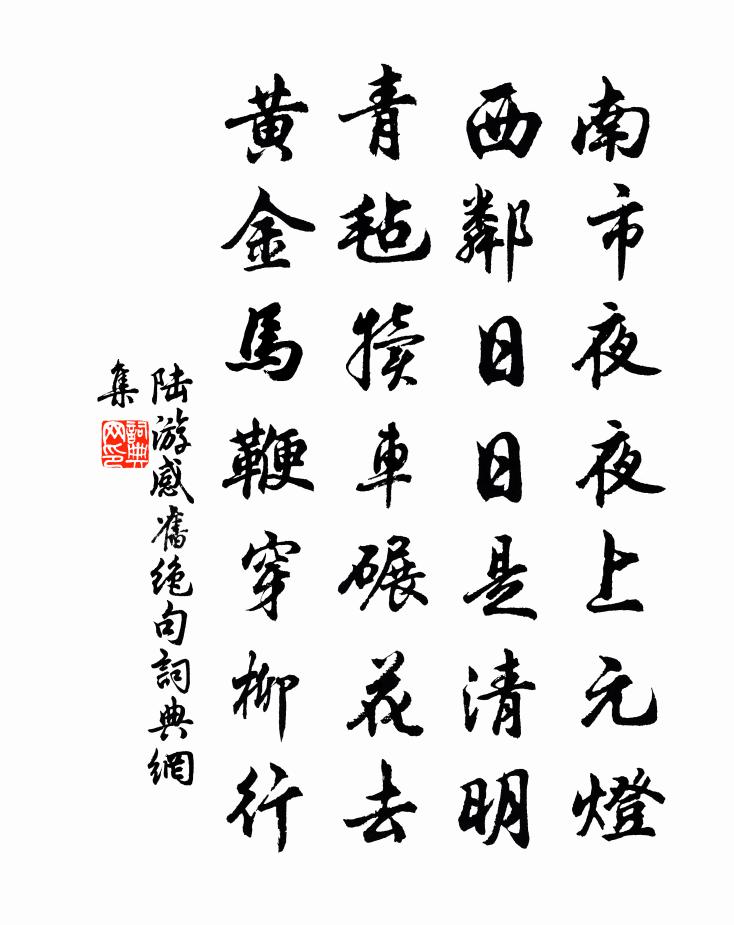 南市夜夜上元燈
西鄰日日是清明
青毡犢車碾花去
黃金馬鞭穿柳行
陸游感舊絶句詞典網
集
詞典
网印